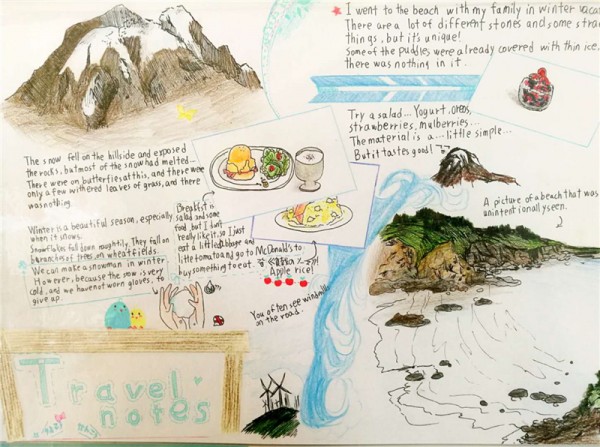 I went to the beach with my family in winter vaca
There are a lot of different stones and some stra
things, but it's unique!
Some of the puddles were already covered with thin ice.
there was nothing in it.
Try a salad... Yogurt, oreos,
strawberries, mulberries...
The material is a ... little simple...
But it tastes good!
The snow fell on the hillside and exposed
the rocks, but most of the snow had melted...
There were no butterflies at this, and there were
only a few withered leaves of grass, and there
was nothing
Winter is a beautiful season, especially
when it snows.
Snowflakes fall down They fall on
branches of trees, on wheat fields.
We can make a snowman in winter
However, because the row is very
cold, and we have not worn gloves, to
give up.
Breakfist is
salad and some
food, but I don't
really like it, so I just
eat a little cabbage and
little tomato and go to
buy something to eat.
McDonald's to
Apple rice!
A picture of a beach that was
unintentionally seen.
You often see windmills
on the road.
Travel
notes